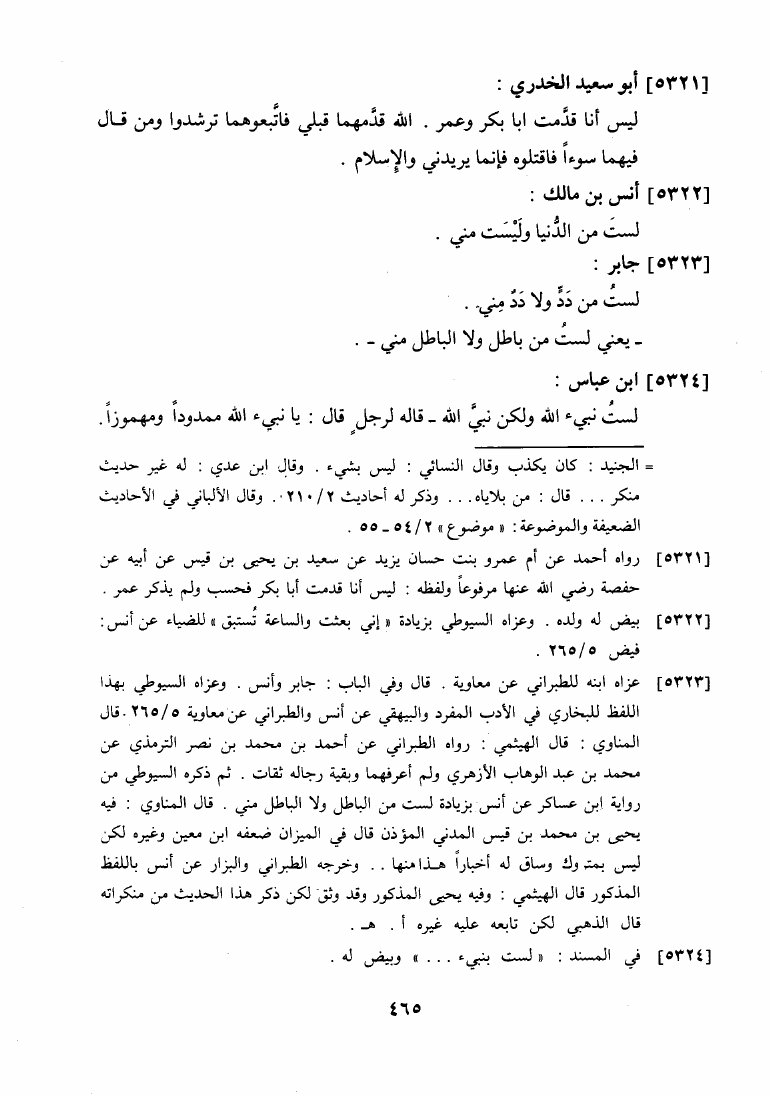 [٥٣٢١] أبو سعيد الخدري :
ليس أنا قدَّمت ابا بكر وعمر . الله قدَّمهما قبلي فاتَّبعوهما ترشدوا ومن قال
فيهما سوءاً فاقتلوه فإنما يريدني والإسلام .
[٥٣٢٢] أنس بن مالك :
لستَ من الدُّنيا ولَيْسَت مني .
[٥٣٢٣] جابر :
لستُ من دَدٍّ ولا دَدٌ مِني .
- يعني لستُ من باطل ولا الباطل مني - .
[٥٣٢٤] ابن عباس :
لستُ نبيء الله ولكن نبيَّ الله - قاله لرجلٍ قال : يا نبيء الله ممدوداً ومهموزاً .
= الجنيد : كان يكذب وقال النسائي : ليس بشيء . وقال ابن عدي : له غير حديث
منكر ... قال : من بلاياه ... وذكر له أحاديث ٢١٠/٢ . وقال الألباني في الأحاديث
الضعيفة والموضوعة : « موضوع » ٥٤/٢ - ٥٥ .
[٥٣٢١] رواه أحمد عن أم عمرو بنت حسان يزيد عن سعيد بن يحيى بن قيس عن أبيه عن
حفصة رضي الله عنها مرفوعاً ولفظه : ليس أنا قدمت أبا بكر فحسب ولم يذكر عمر .
[٥٣٢٢] بيض له ولده . وعزاه السيوطي بزيادة « إني بعثت والساعة تُستبق » للضياء عن أنس :
فيض ٢٦٥/٥ .
[٥٣٢٣] عزاه ابنه للطبراني عن معاوية . قال وفي الباب : جابر وأنس . وعزاه السيوطي بهذا
اللفظ للبخاري في الأدب المفرد والبيهقي عن أنس والطبراني عن معاوية ٢٦٥/٥ . قال
المناوي : قال الهيثمي : رواه الطبراني عن أحمد بن محمد بن نصر الترمذي عن
محمد بن عبد الوهاب الأزهري ولم أعرفهما وبقية رجاله ثقات . ثم ذكره السيوطي من
رواية ابن عساكر عن أنس بزيادة لست من الباطل ولا الباطل مني . قال المناوي : فيه
يحيى بن محمد بن قيس المدني المؤذن قال في الميزان ضعفه ابن معين وغيره لكن
ليس بمتروك وساق له أخباراً هذا منها .. وخرجه الطبراني والبزار عن أنس باللفظ
المذكور قال الهيثمي : وفيه يحيى المذكور وقد وثق لكن ذكر هذا الحديث من منكراته
قال الذهبي لكن تابعه عليه غيره أ . هـ .
[٥٣٢٤] في المسند : « لست بنبيء ... » وبيض له .
٤٦٥